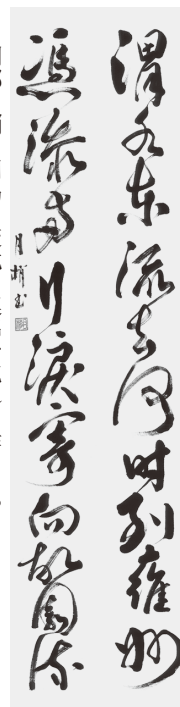 渭水東流去何時到雍州
憑添兩行淚寄向故園流